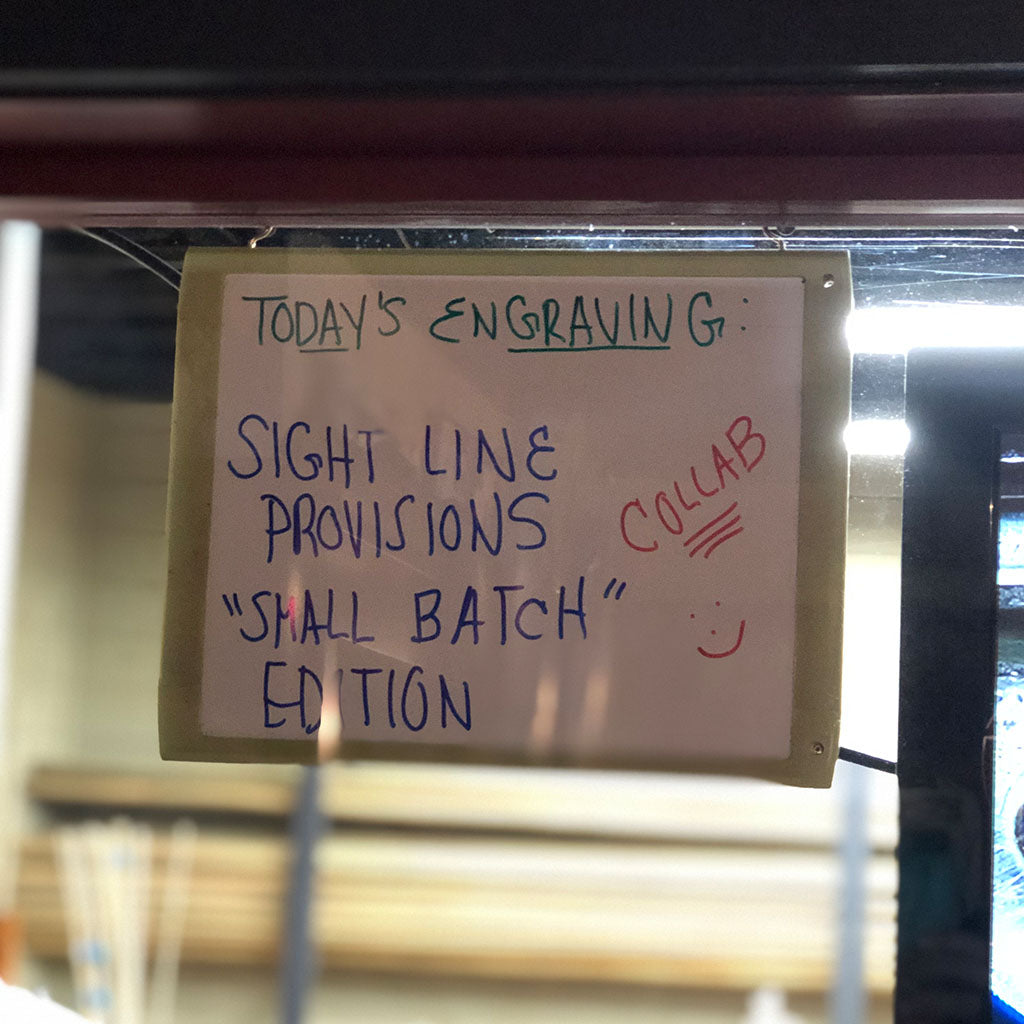 TODAY'S ENGRAVING:
SIGHT LINE
PROVISIONS
"SMALL BATCH"
EDITION
COLLAB
:)